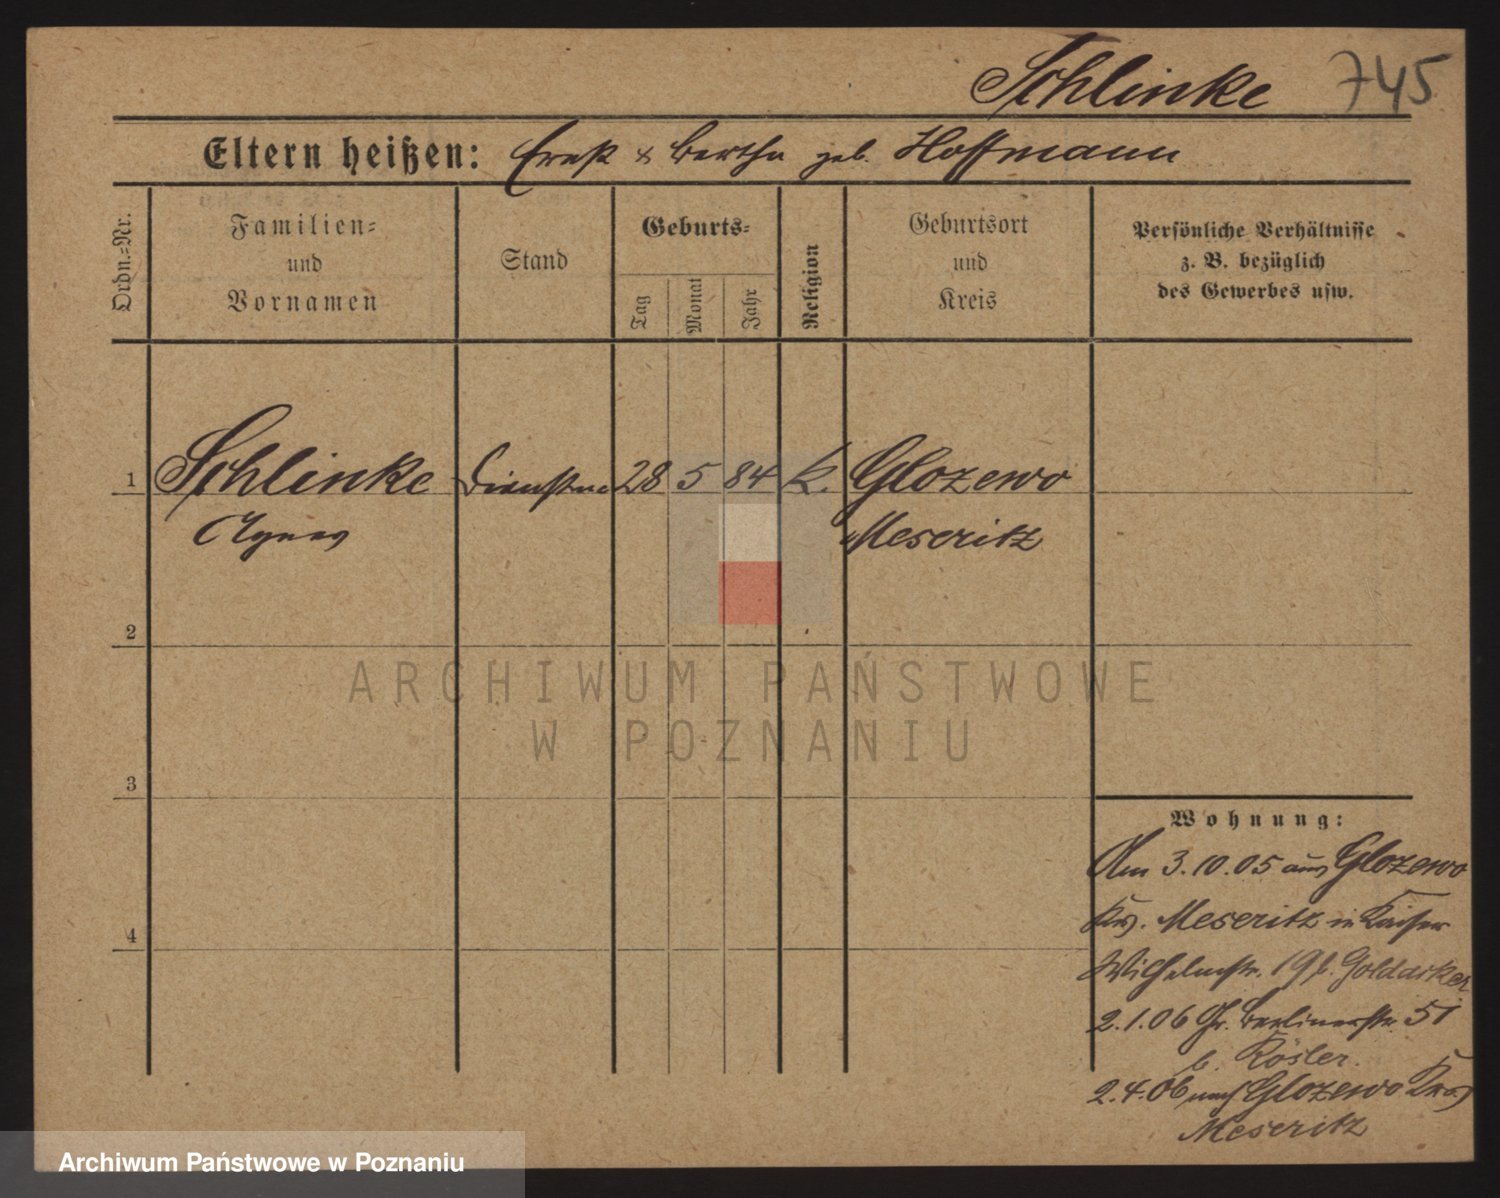 Schlinke 745
Eltern heißen: Ernst & Bertha geb. Hoffmann
Ordn.-Nr.
Familien-
und
Vornamen
Stand
Geburts-
Tag
Monat
Jahr
Religion
Geburtsort
und
Kreis
Persönliche Verhältnisse
z. B. bezüglich
des Gewerbes usw.
1 Schlinke 28 5 84 k. Glozewo
Agnes Meseritz
2
ARCHIWUM PAŃSTWOWE
W POZNANIU
3
Wohnung:
Am 3.10.05 aus Glozewo
Krs. Meseritz in Kaiser
4
Wilhelmstr. 19 b. Goldacker
2.1.06 Gr. Berlinerstr. 51
b. Kösler.
2.4.06 nach Glozewo Krs.
Meseritz
Archiwum Państwowe w Poznaniu